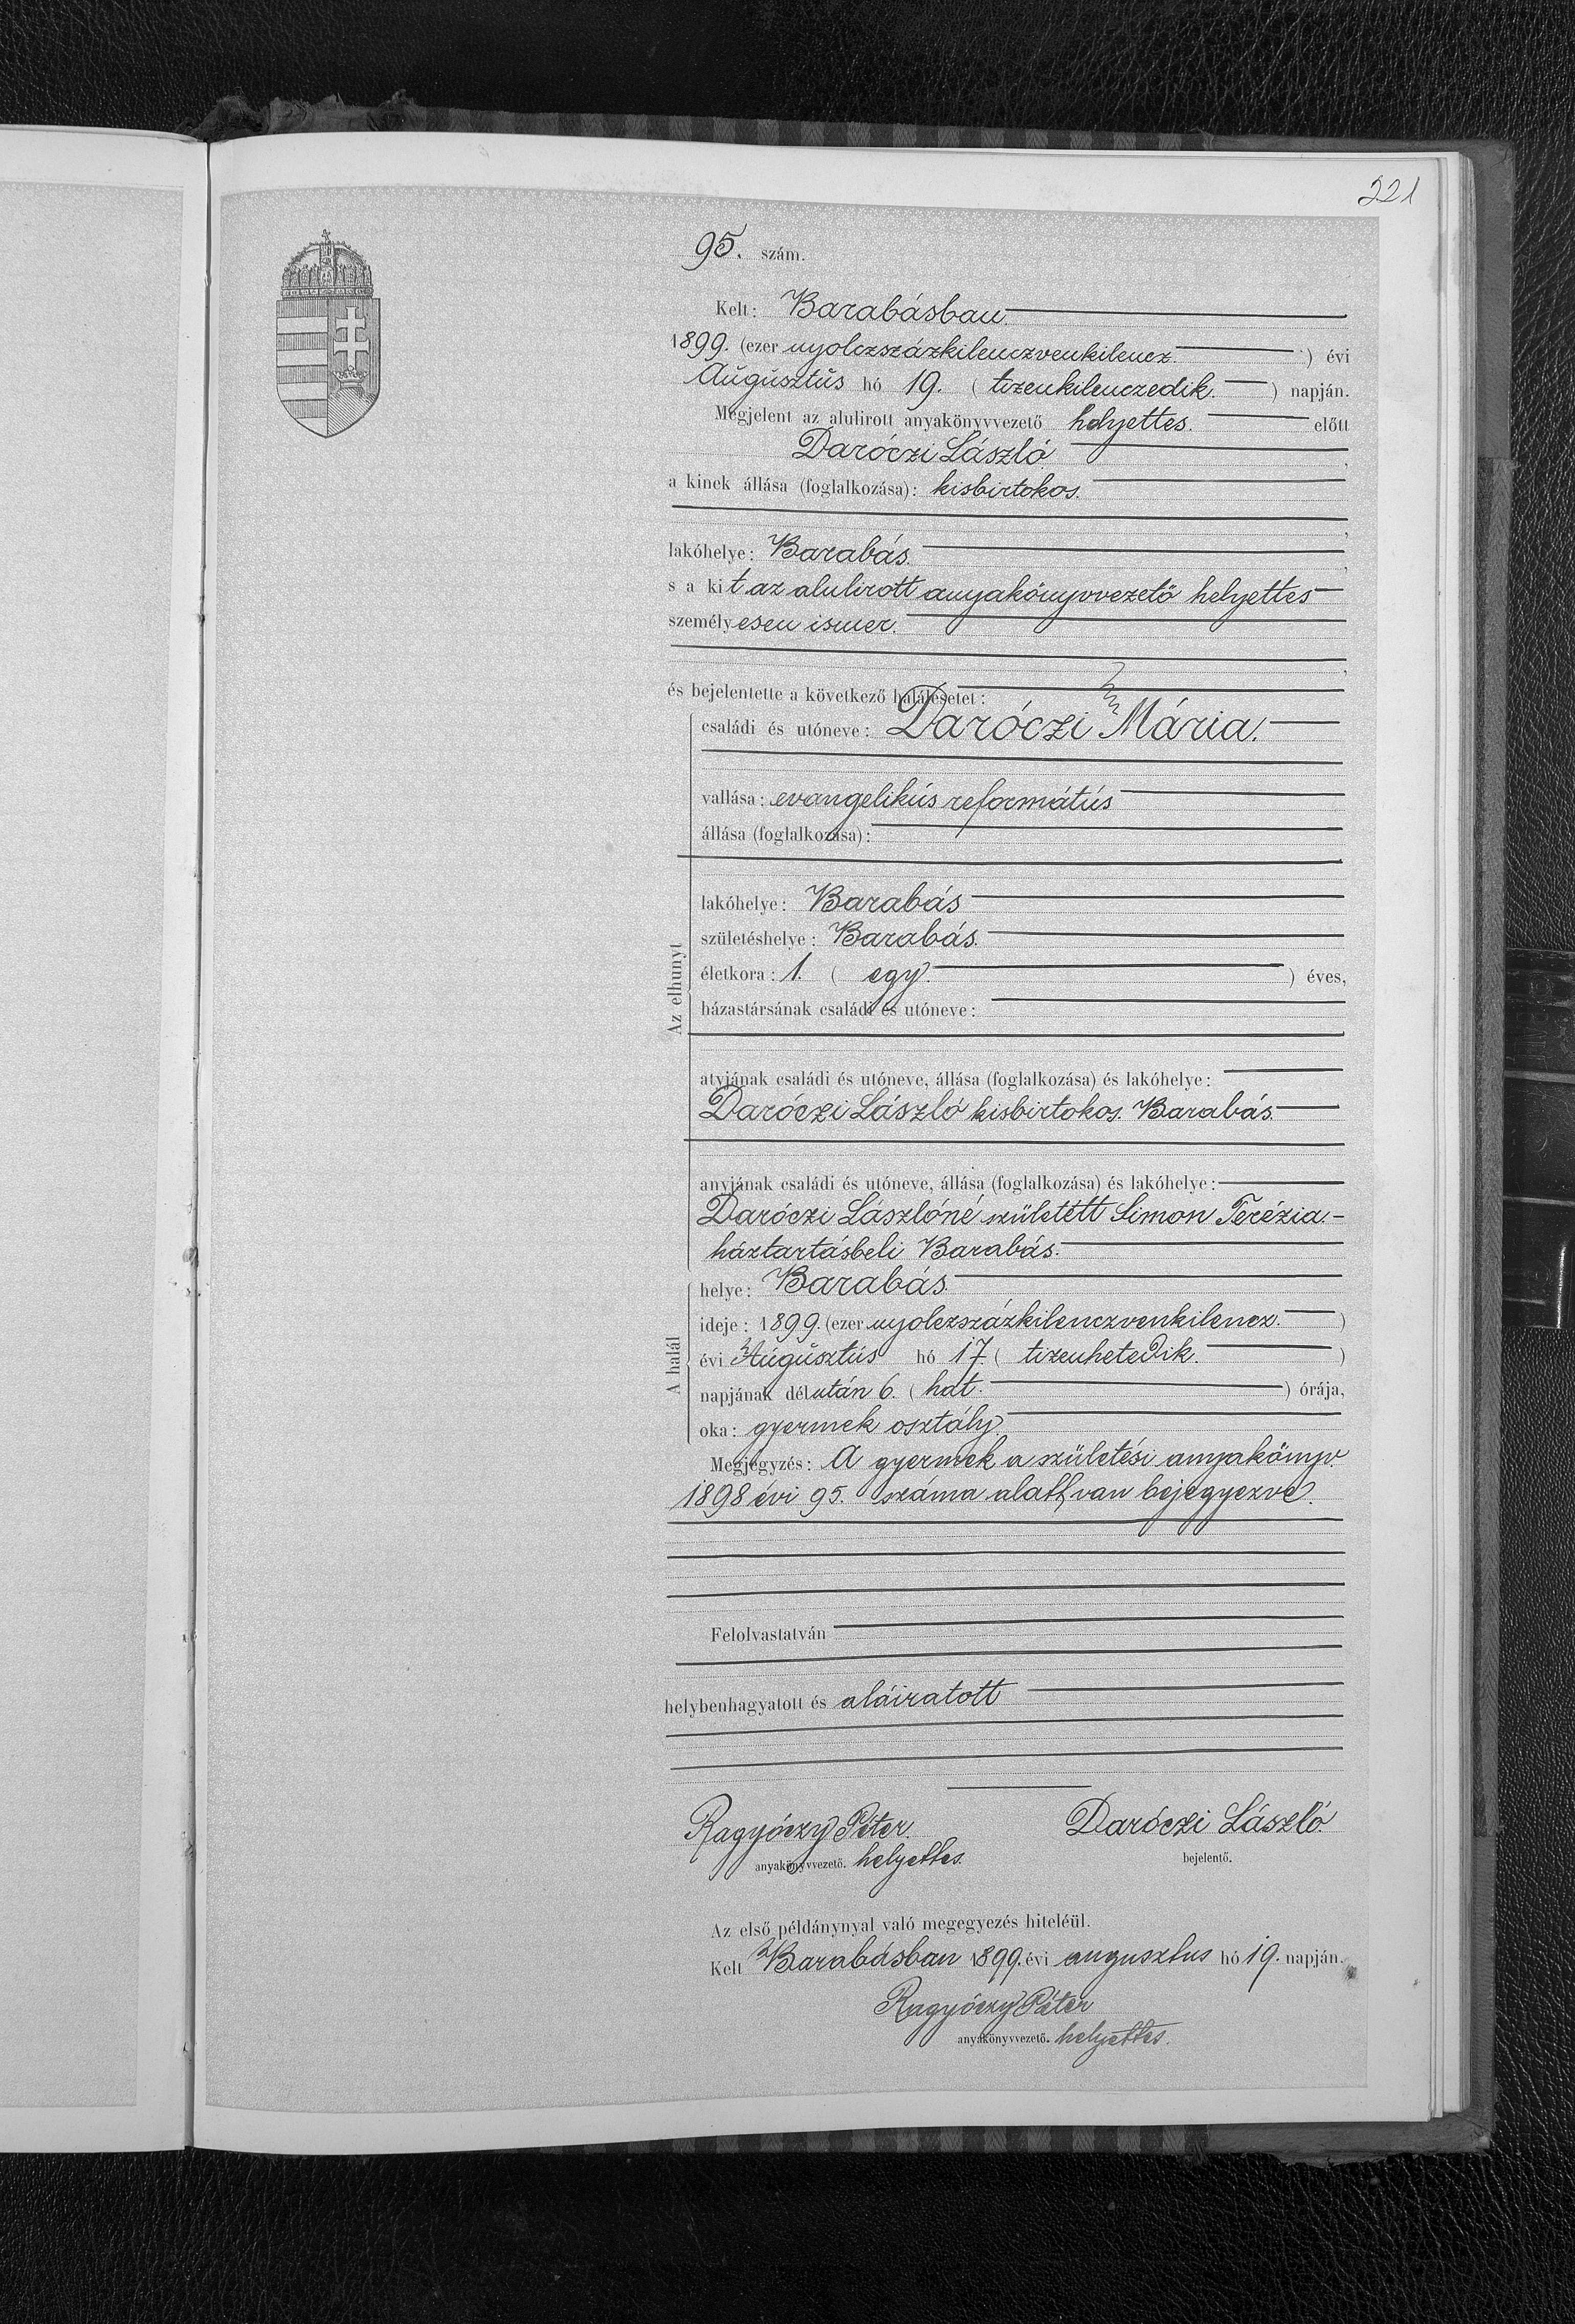 221
95. szám.
Kelt: Barabásban
1899. (ezer nyolczszázkilenczvenkilencz.) évi
Augusztus hó 19. (tizenkilenczedik.) napján.
Megjelent az alulirott anyakönyvvezető helyettes. előtt
Daróczi László,
a kinek állása (foglalkozása): kisbirtokos.
lakóhelye: Barabás.
s a kit az alulirott anyakönyvvezető helyettes
személyesen ismer.
és bejelentette a következő halálesetet:
családi és utóneve: Daróczi Mária.
vallása: evangelikús reformátús
állása (foglalkozása):
lakóhelye: Barabás
születéshelye: Barabás.
Az elhunyt
életkora: 1. (egy.) éves,
házastársának családi és utóneve:
atyjának családi és utóneve, állása (foglalkozása) és lakóhelye:
Daróczi László kisbirtokos. Barabás.
anyjának családi és utóneve, állása (foglalkozása) és lakóhelye:
Daróczi Lászlóné született Simon Terézia.-
háztartásbeli Barabás.
helye: Barabás.
ideje: 1899. (ezer nyolczszázkilenczvenkilencz.)
A halál
évi Augusztus hó 17. (tizenhetedik.)
napjának délután 6. (hat.) órája,
oka: gyermek osztály.
Megjegyzés: A gyermek a születési anyakönyv.
1898 évi 95. száma alatt van bejegyezve.
Felolvastatván
helybenhagyatott és aláiratott
Ragyóczy Péter. Daróczi László.
anyakönyvvezető. helyettes. bejelentő.
Az első példánynyal való megegyezés hiteléül.
Kelt Barabásban 1899. évi augusztus hó 19. napján.
Ragyóczy Péter
anyakönyvvezető. helyettes.